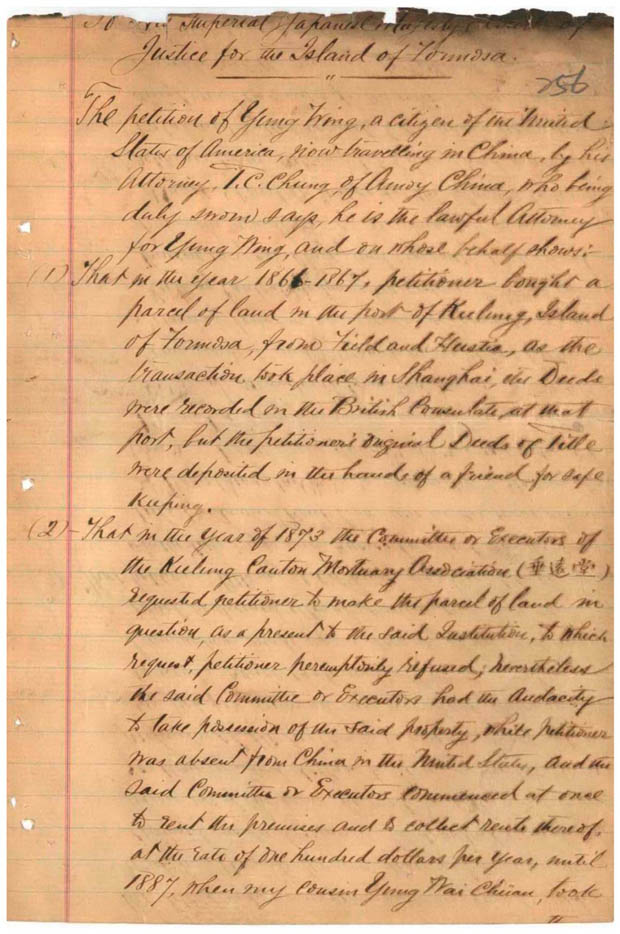 To His Imperial Japanese Majesty's Court of
Justice for the Island of Formosa.
256
The petition of Yung Wing, a citizen of the United
States of America, now travelling in China, by his
Attorney, T. C. Chung, of Amoy China, who being
duly sworn says, he is the lawful Attorney
for Yung Wing, and on whose behalf shows:-
(1) That in the year 1866-1867, petitioner bought a
parcel of land in the port of Kulung, Island
of Formosa, from Field and Hustis, as the
transaction took place in Shanghai, the Deeds
were recorded in the British Consulate, at that
port, but the petitioner's original Deeds of Title
were deposited in the hands of a friend for safe
keeping.
(2) - That in the year of 1873 the Committee or Executors of
the Kulung Canton Mortuary Association (垂遠堂)
requested petitioner to make the parcel of land in
question, as a present to the said Institution, to which
request, petitioner peremptorily refused; nevertheless
the said Committee or Executors had the audacity
to take possession of the said property, while petitioner
was absent from China in the United States, and the
said Committee or Executors commenced at once
to rent the premises and to collect rents thereof,
at the rate of one hundred dollars per year, until
1887, when my cousin Yung Wai Chüan, took